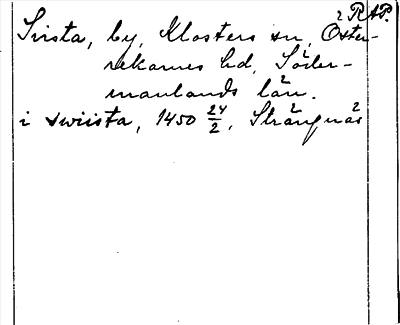 RAP.
Svista, by, Klosters sn, Öster-
rekarnes hd, Söder-
manlands län.
i swiista, 1450 24/2, Strängnäs